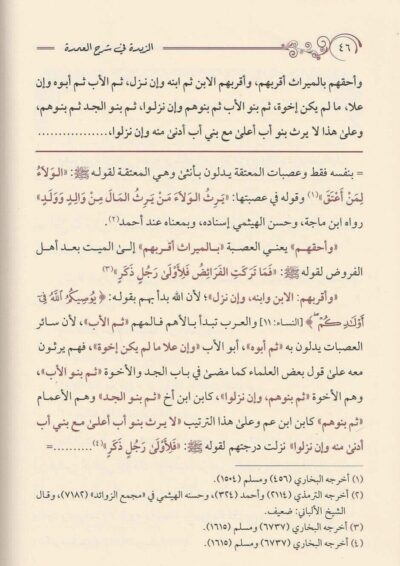 ٤٦ الزبدة في شرح العمدة
وأحقهم بالميراث أقربهم، وأقربهم الابن ثم ابنه وإن نزل، ثم الأب ثم أبوه وإن
علا، ما لم يكن إخوة، ثم بنو الأب ثم بنوهم وإن نزلوا، ثم بنو الجد ثم بنوهم،
وعلى هذا لا يرث بنو أب أعلى مع بني أب أدنى منه وإن نزلوا،..................
= بنفسه فقط وعصبات المعتقة يدلون بأنثى وهي المعتقة لقوله ﷺ: «الوَلَاءُ
لِمَنْ أَعْتَقَ»(١) وقوله في عصبتها: «يَرِثُ الوَلَاءَ مَنْ يَرِثُ المَالَ مِنْ وَالِدٍ وَوَلَدٍ»
رواه ابن ماجة، وحسن الهيثمي إسناده، وبمعناه عند أحمد(٢).
«وأحقهم» يعني العصبة «بالميراث أقربهم» إلى الميت بعد أهل
الفروض لقوله ﷺ: «فَمَا تَرَكَتِ الفَرَائِضُ فَلِأَوْلَى رَجُلٍ ذَكَرٍ»(٣)
«وأقربهم: الابن وابنه، وإن نزل»؛ لأن الله بدأ بهم بقوله: ﴿ يُوصِيكُمُ اللَّهُ فِي
أَوْلَادِكُمْ ﴾ [النساء: ١١] والعرب تبدأ بالأهم فالمهم «ثم الأب»، لأن سائر
العصبات يدلون به «ثم أبوه»، أبو الأب «وإن علا ما لم يكن إخوة»، فهم يرثون
معه على قول بعض العلماء كما مضى في باب الجد والأخوة «ثم بنو الأب»،
وهم الأخوة «ثم بنوهم، وإن نزلوا»، كابن ابن أخ «ثم بنو الجد» وهم الأعمام
«ثم بنوهم» كابن ابن عم وعلى هذا الترتيب «لا يرث بنو أب أعلى مع بني أب
أدنى منه وإن نزلوا» نزلت درجتهم لقوله ﷺ: «فَلِأَوْلَى رَجُلٍ ذَكَرٍ»(٤)..........=
(١) أخرجه البخاري (٤٥٦) ومسلم (١٥٠٤).
(٢) أخرجه الترمذي (٢١١٤) وأحمد (٣٢٤)، وحسنه الهيثمي في «مجمع الزوائد» (٧١٨٢)، وقال
الشيخ الألباني: ضعيف.
(٣) أخرجه البخاري (٦٧٣٧) ومسلم (١٦١٥).
(٤) أخرجه البخاري (٦٧٣٧) ومسلم (١٦١٥).